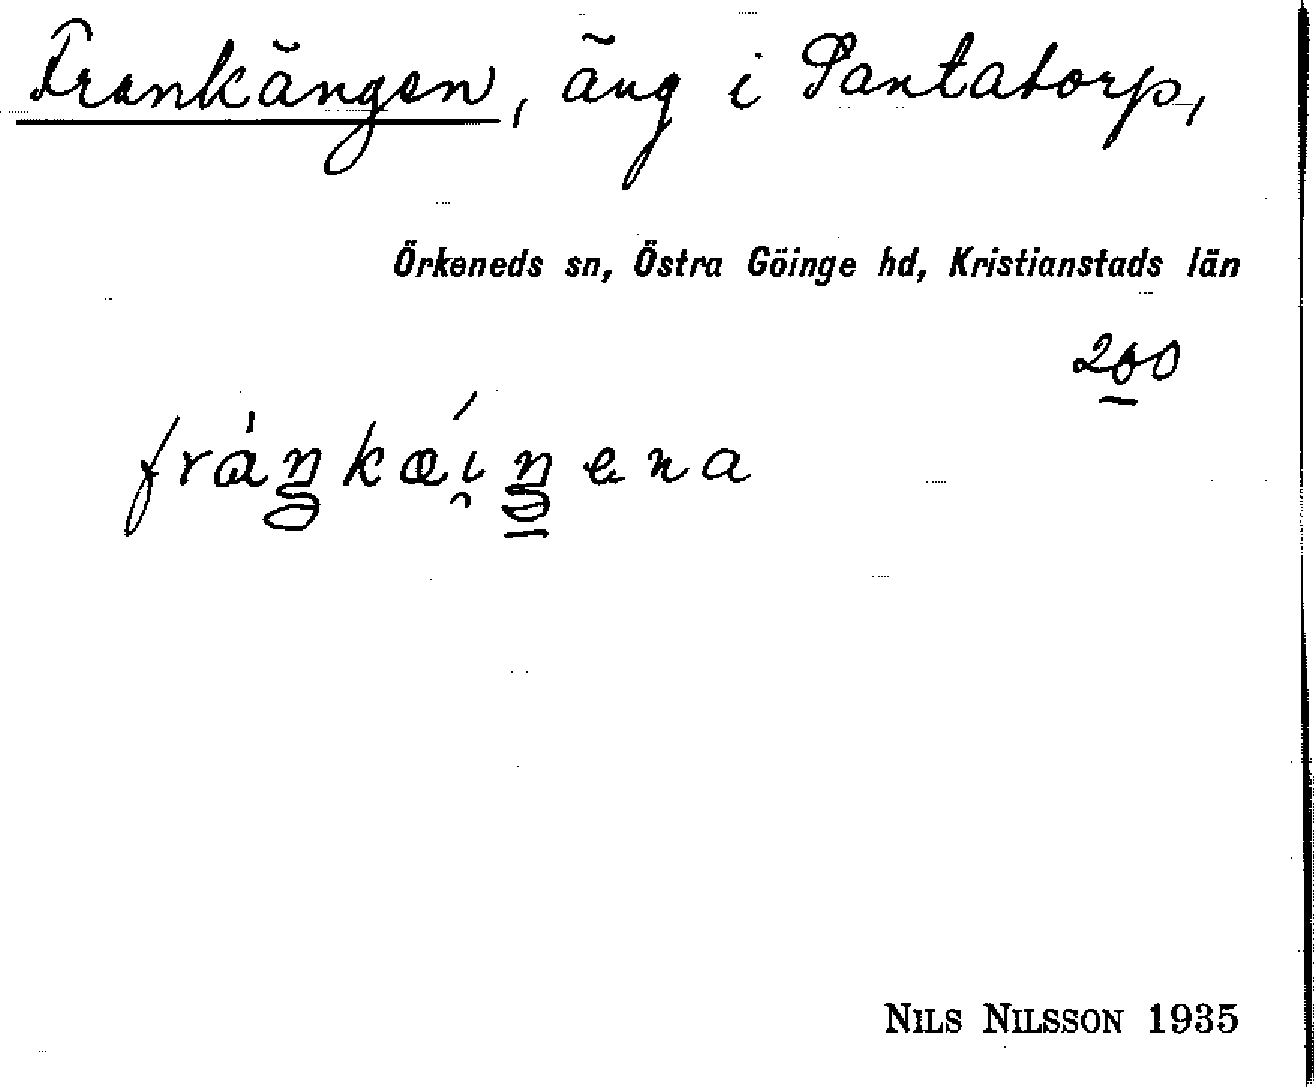 Frankängen, äng i Pantatorp,
Örkeneds sn, Östra Göinge hd, Kristianstads län
200
fráŋkæíŋena
NILS NILSSON 1935